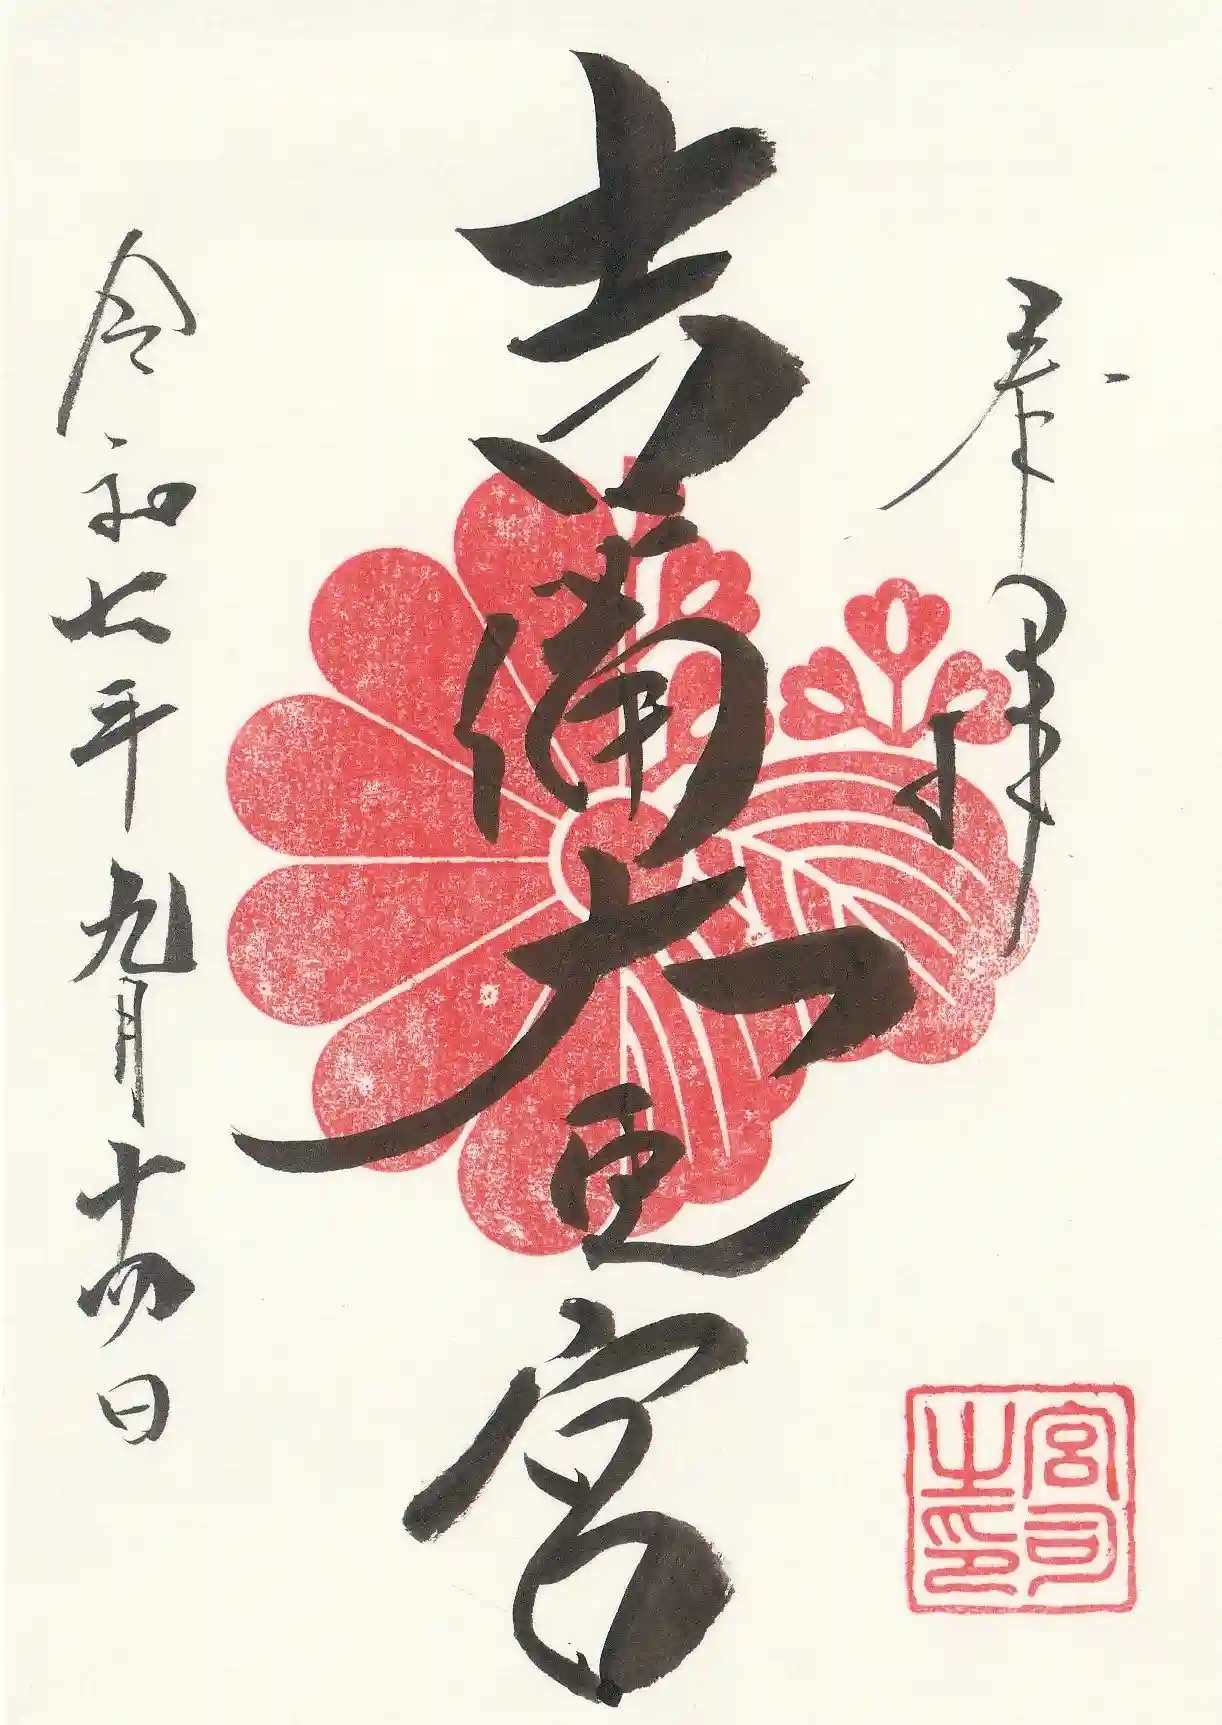 奉拝
吉備大臣宮
令和七年九月十四日
宮司
之印